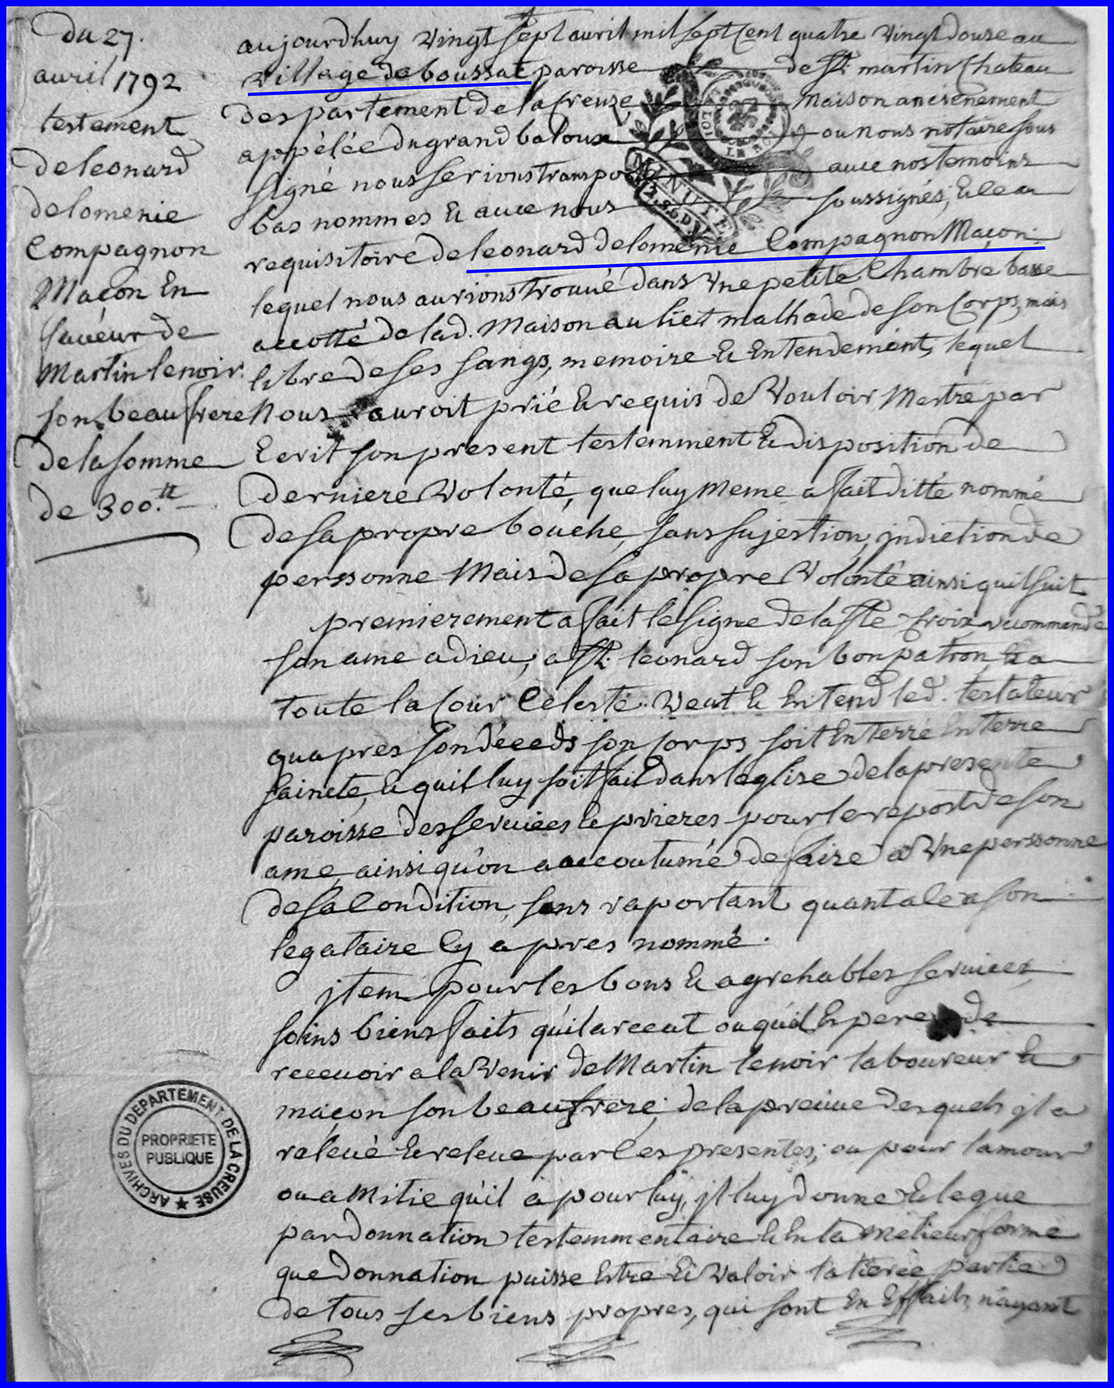 du 27.
avril 1792
testement
de leonard
delomenie
Compagnon
Maçon En
faveur de
Martin lenoir
son beaufrere
de la somme
de 300.ll
aujourdhuy vingt sept avril mil sept Cent quatre vingt douze au
village de boussat paroisse de St. martin Chateau
despartement de la Creuze, Maison anciennement
appélée du grand baloux ou nous notaire sous
signé nous serions transpor avec nos temoins
bas nommes & avec nous soussignés, & le a
requisitoire de leonard delomenie Compagnon Maçon
lequel nous aurions trouvé dans Une petite Chambre basse
a cotté de lad. Maison au liet malhade de son Corps, mais
libre de ses sangs, memoire & Entendement, lequel
Nous auroit prié & requis de Vouloir Mettre par
Ecrit son present testemment & disposition de
derniere Volonté, que luy meme a fait ditté nommé
de sa propre bouche, sans sujestion, indiction de
personne Mais de sa propre Volonté ainsi quil suit
premierement a fait le signe de la Ste Croix recommandé
son ame a dieu, a St. leonard son bon patron, & a
toute la Cour Céleste. Veut & Entend led. testateur
quapres son décéds son Corps soit Enterré En terre
saincte, & quil luy soit fait dans leglise de la presente
paroisse des services & prieres pour le repost de son
ame, ainsi qu'on a accoutumé de faire a Une personne
de sa Condition, sans raportant quant a le a son
legataire Cy apres nommé.
jtem pour les bons & agrehables services,
soins biens faits qu'il a receut ou qu'il Espere de
recevoir a la Venir de Martin lenoir laboureur &
maçon son beaufrere, de la preuve desquels jl a
relevé & releve par les presentes, ou pour lamour
ou a Mitie qu'il a pour luy, jl luy donne & legue
par donnation testemmentaire & En la Melieur forme
que donnation puisse Estre & Valoir la tierce partie
de tous ses biens propres, qui sont En Effaits, n'ayant
MINUTE
LA LOI
LE ROI
ARCHIVES DU DEPARTEMENT DE LA CREUSE
PROPRIETE
PUBLIQUE